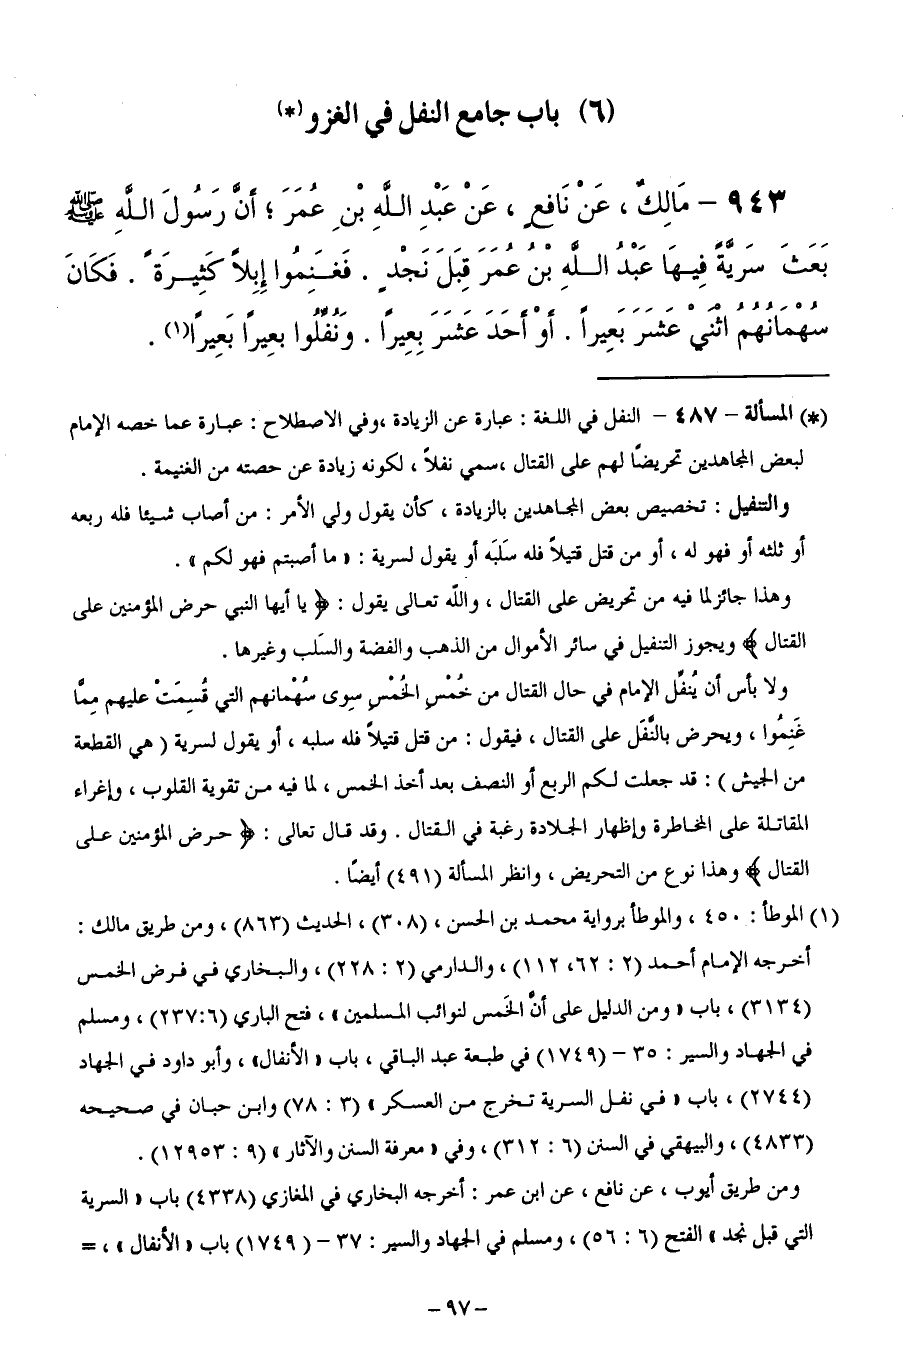 (٦) باب جامع النفل في الغزو(*)
٩٤٣ – مَالِكٌ ، عَنْ نَافِعٍ ، عَنْ عَبْدِ اللَّهِ بْنِ عُمَرَ ؛ أَنَّ رَسُولَ اللَّهِ ﷺ
بَعَثَ سَرِيَّةً فِيهَا عَبْدُ اللَّهِ بْنُ عُمَرَ قِبَلَ نَجْدٍ . فَغَنِمُوا إِبِلاً كَثِيرَةً . فَكَانَ
سُهْمَانُهُمْ اثْنَيْ عَشَرَ بَعِيراً . أَوْ أَحَدَ عَشَرَ بَعِيراً . وَنُفِّلُوا بَعِيراً بَعِيراً(١) .
(*) المسألة – ٤٨٧ – النفل في اللغة : عبارة عن الزيادة ،وفي الاصطلاح : عبارة عما خصه الإمام
لبعض المجاهدين تحريضًا لهم على القتال ،سمي نفلاً ، لكونه زيادة عن حصته من الغنيمة .
والتنفيل : تخصيص بعض المجاهدين بالزيادة ، كأن يقول ولي الأمر : من أصاب شيئا فله ربعه
أو ثلثه أو فهو له ، أو من قتل قتيلاً فله سَلَبَه أو يقول لسرية : « ما أصبتم فهو لكم » .
وهذا جائزلما فيه من تحريض على القتال ، واللَّه تعالى يقول : ﴿ يا أيها النبي حرض المؤمنين على
القتال ﴾ ويجوز التنفيل في سائر الأموال من الذهب والفضة والسلَب وغيرها .
ولا بأس أن يُنفِّل الإمام في حال القتال من خُمْسِ الخُمْسِ سِوى سُهْمانهم التي قُسِمَتْ عليهم مِمَّا
غَنِمُوا ، ويحرض بالنَّفَل على القتال ، فيقول : من قتل قتيلاً فله سلبه ، أو يقول لسرية ( هي القطعة
من الجيش ) : قد جعلت لكم الربع أو النصف بعد أخذ الخمس ، لما فيه من تقوية القلوب ، وإغراء
المقاتلة على المخاطرة وإظهار الجلادة رغبة في القتال . وقد قال تعالى : ﴿ حرض المؤمنين على
القتال ﴾ وهذا نوع من التحريض ، وانظر المسألة (٤٩١) أيضًا .
(١) الموطأ : ٤٥٠ ، والموطأ برواية محمد بن الحسن ، (٣٠٨) ، الحديث (٨٦٣) ، ومن طريق مالك :
أخرجه الإمام أحمد (٢ : ٦٢، ١١٢) ، والدارمي (٢ : ٢٢٨) ، والبخاري في فرض الخمس
(٣١٣٤) ، باب « ومن الدليل على أنَّ الخَمس لنوائب المسلمين » ، فتح الباري (٦:٢٣٧) ، ومسلم
في الجهاد والسير : ٣٥ – (١٧٤٩) في طبعة عبد الباقي ، باب « الأنفال» ، وأبو داود في الجهاد
(٢٧٤٤) ، باب « في نفل السرية تخرج من العسكر » (٣ : ٧٨) وابن حبان في صحيحه
(٤٨٣٣) ، والبيهقي في السنن (٦ : ٣١٢) ، وفي « معرفة السنن والآثار » (٩ : ١٢٩٥٣) .
ومن طريق أيوب ، عن نافع ، عن ابن عمر : أخرجه البخاري في المغازي (٤٣٣٨) باب « السرية
التي قبل نجد » الفتح (٦ : ٥٦) ، ومسلم في الجهاد والسير : ٣٧ – ( ١٧٤٩) باب « الأنفال » ، =
–٩٧–